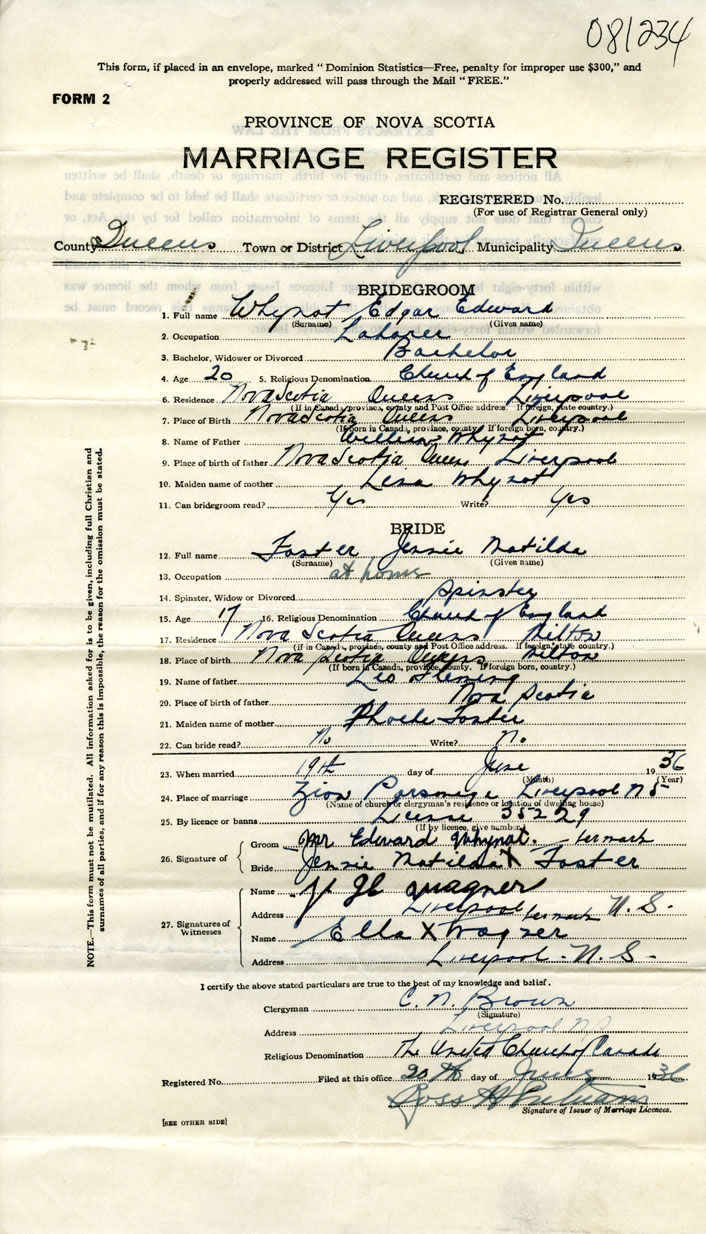 081234
This form, if placed in an envelope, marked "Dominion Statistics—Free, penalty for improper use $300," and
properly addressed will pass through the Mail "FREE."
FORM 2
PROVINCE OF NOVA SCOTIA
MARRIAGE REGISTER
REGISTERED No.
(For use of Registrar General only)
County Queens Town or District Liverpool Municipality Queens
BRIDEGROOM
1. Full name Whynot Edgar Edward
(Surname) (Given name)
2. Occupation Laborer
3. Bachelor, Widower or Divorced Bachelor
4. Age 20 5. Religious Denomination Church of England
6. Residence Nova Scotia Queens Liverpool
(If in Canada, province, county and Post Office address. If foreign, state country.)
7. Place of Birth Nova Scotia Queens Liverpool
(If born in Canada, province, county. If foreign born, country.)
8. Name of Father William Whynot
9. Place of birth of father Nova Scotia Queens Liverpool
10. Maiden name of mother Lena Whynot
11. Can bridegroom read? Yes Write? Yes
BRIDE
12. Full name Foster Jennie Matilda
(Surname) (Given name)
13. Occupation at home
14. Spinster, Widow or Divorced Spinster
15. Age 17 16. Religious Denomination Church of England
17. Residence Nova Scotia Queens Milton
(If in Canada, province, county and Post Office address. If foreign, state country.)
18. Place of birth Nova Scotia Queens Milton
(If born in Canada, province, county. If foreign born, country.)
19. Name of father Leo Fleming
20. Place of birth of father Nova Scotia
21. Maiden name of mother Phoebe Foster
22. Can bride read? No Write? No
23. When married 19th day of June 1936
(Month) (Year)
24. Place of marriage Zion Parsonage Liverpool N S
(Name of church or clergyman's residence or location of dwelling house)
25. By licence or banns License 35229
(If by licence, give number)
26. Signature of
Groom Mr Edward Whynot.
her mark
Bride Jennie Matilda X Foster
27. Signatures of Witnesses
Name Wagner
Address Liverpool N. S.
her mark
Name Ella X Wagner
Address Liverpool - N. S -
I certify the above stated particulars are true to the best of my knowledge and belief.
Clergyman C. N. Brown
(Signature)
Address Liverpool N.S.
Religious Denomination The United Church of Canada
Registered No. Filed at this office 20th day of June 1936
Signature of Issuer of Marriage Licences.
[SEE OTHER SIDE]
NOTE.—This form must not be mutilated. All information asked for is to be given, including full Christian and
surnames of all parties, and if for any reason this is impossible, the reason for the omission must be stated.